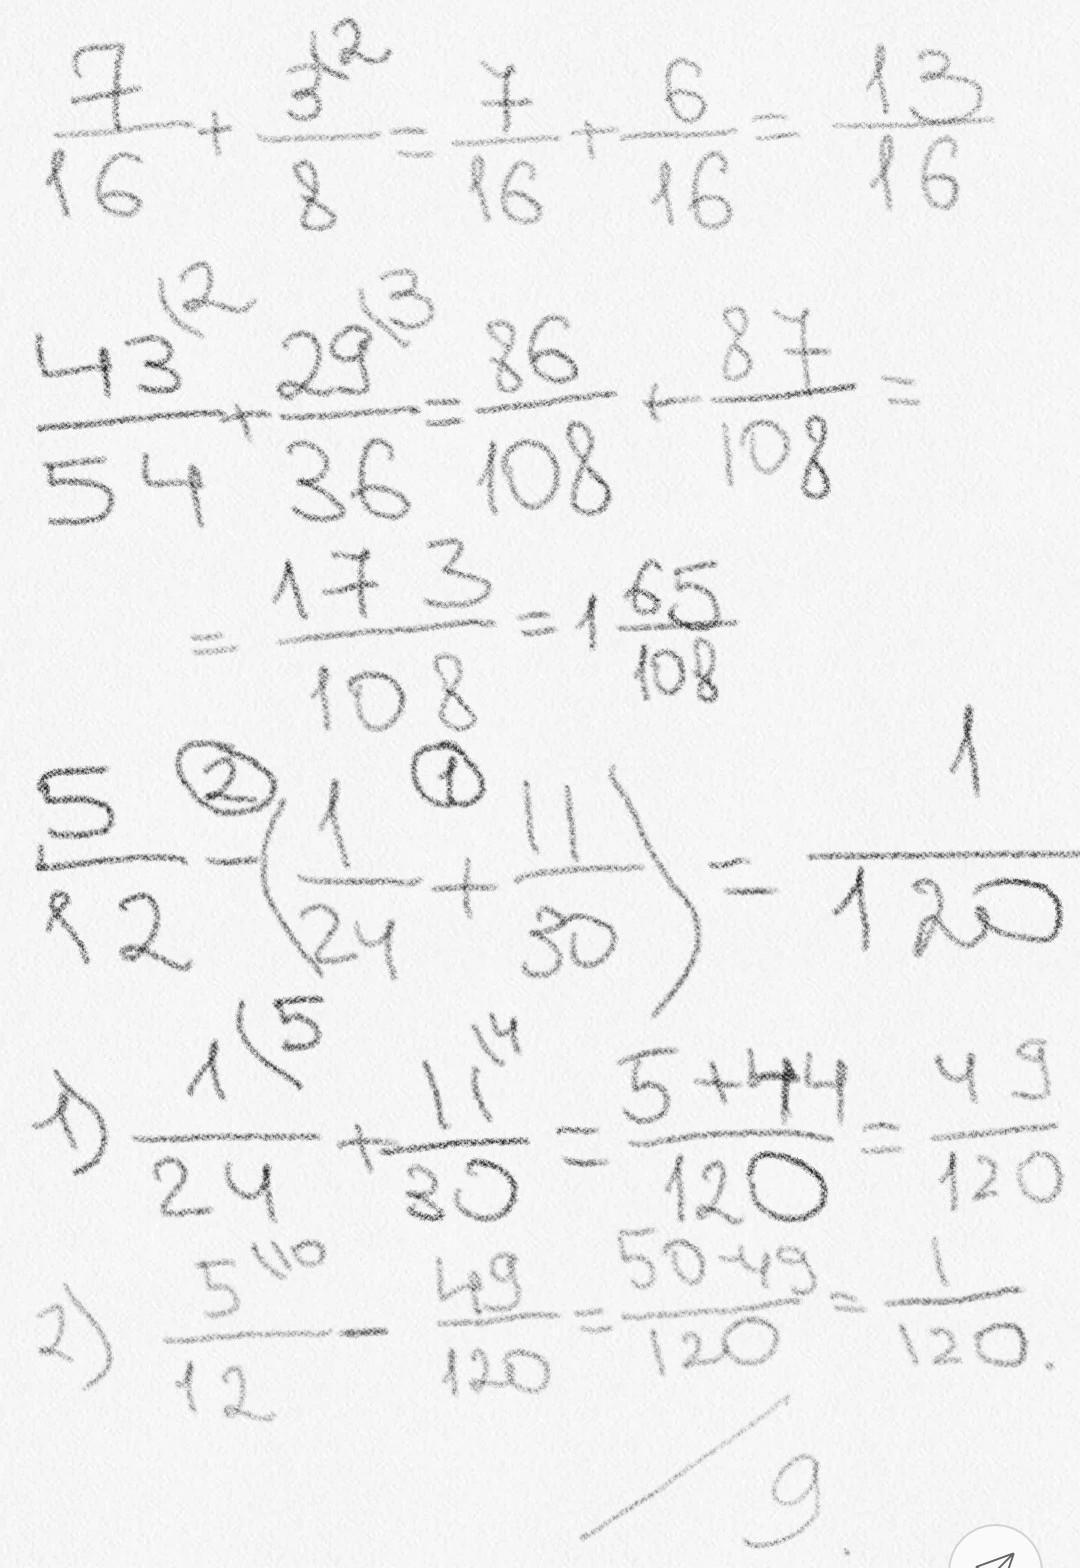 7/16 + 3\2/8 = 7/16 + 6/16 = 13/16
43\2/54 + 29\3/36 = 86/108 + 87/108 =
= 173/108 = 1 65/108
5/12 ② - (1/24 ① + 11/30) = 1/120
1) 1\5/24 + 11\4/30 = 5+44/120 = 49/120
2) 5\10/12 - 49/120 = 50-49/120 = 1/120.
/ 9.